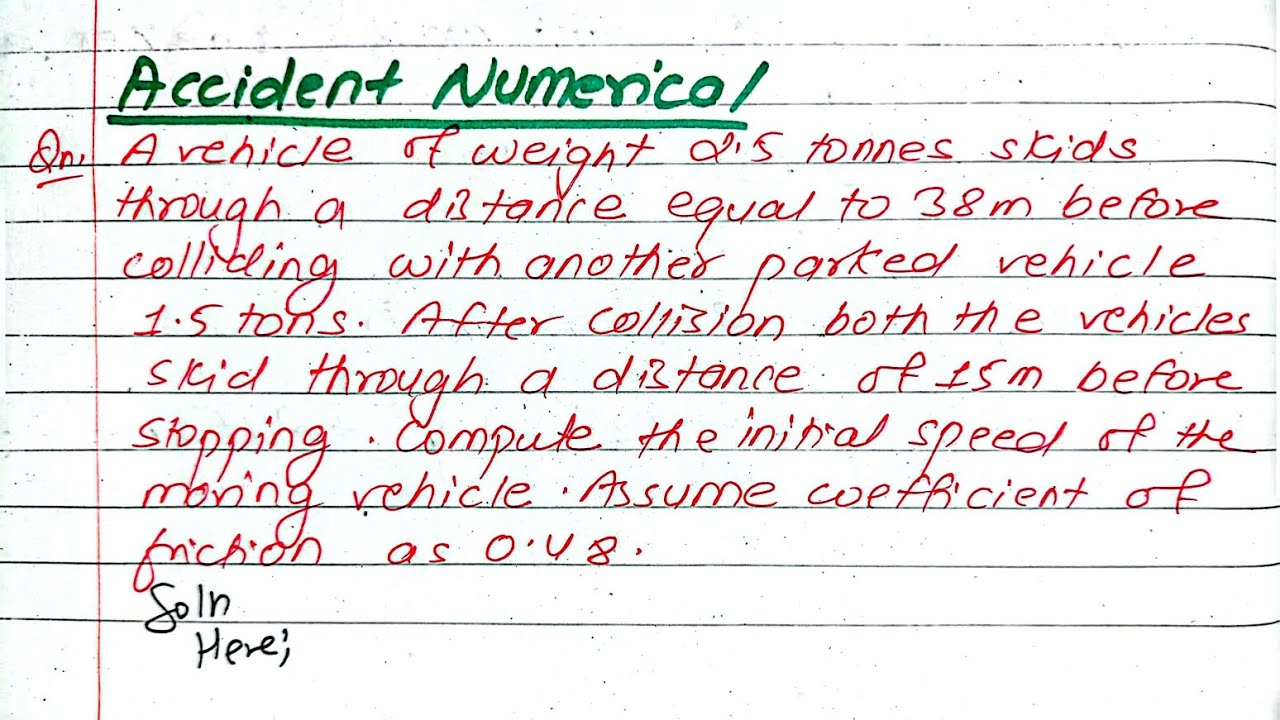 Accident Numerical
Qn. A vehicle of weight 2.5 tonnes skids
through a distance equal to 38m before
colliding with another parked vehicle
1.5 tons. After collision both the vehicles
skid through a distance of 15m before
stopping. Compute the initial speed of the
moving vehicle. Assume coefficient of
friction as 0.48.
Soln
Here;